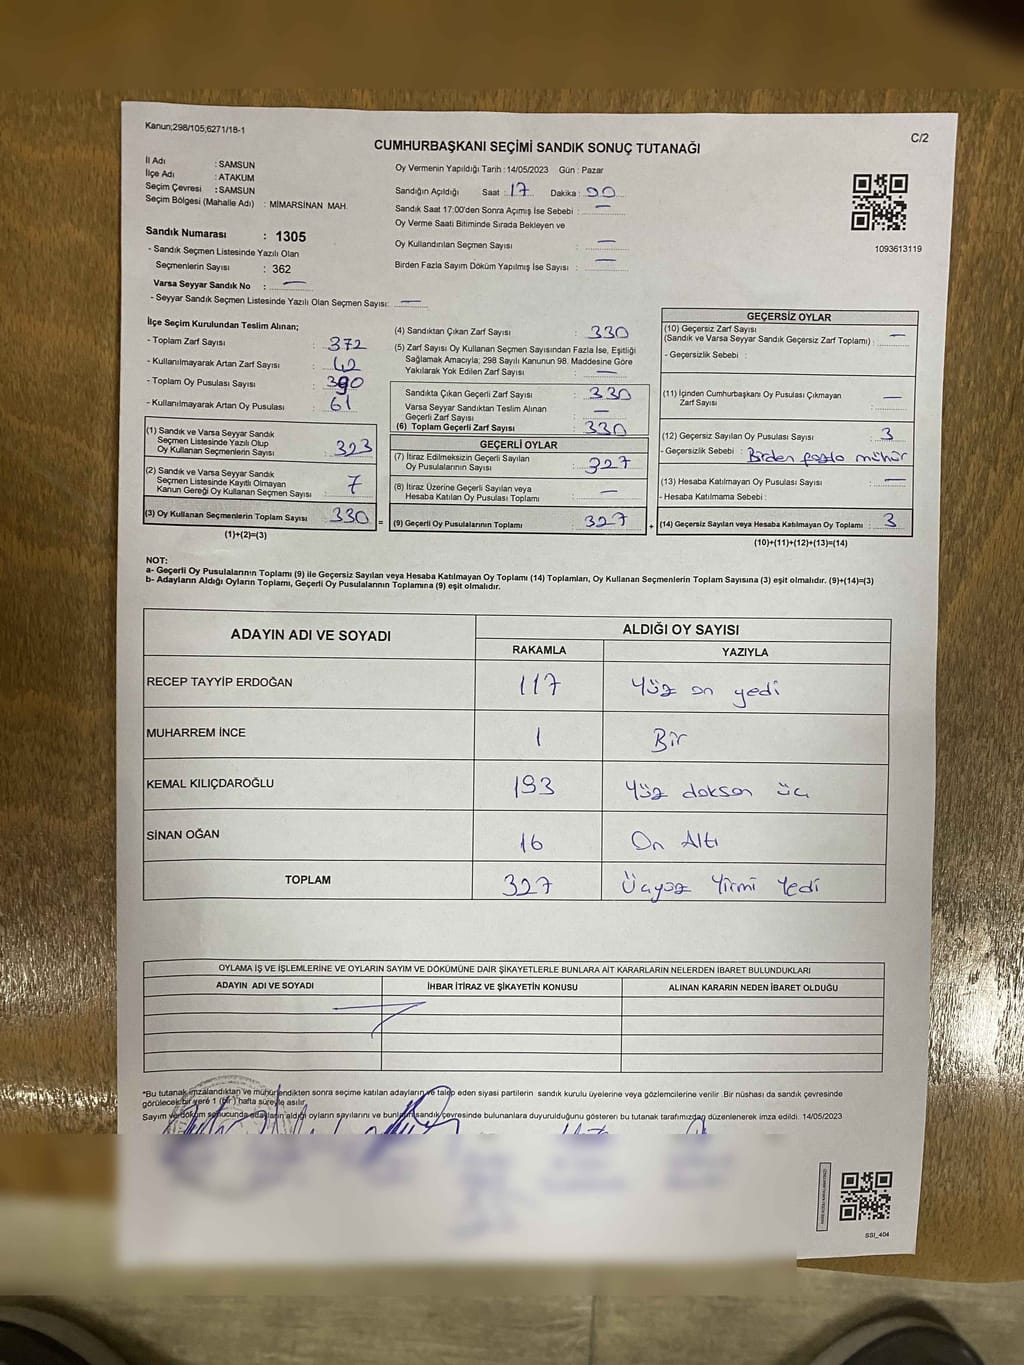 Kanun;298/105;6271/18-1
C/2
CUMHURBAŞKANI SEÇİMİ SANDIK SONUÇ TUTANAĞI
İl Adı : SAMSUN
İlçe Adı : ATAKUM
Seçim Çevresi : SAMSUN
Seçim Bölgesi (Mahalle Adı) : MİMARSİNAN MAH.
Sandık Numarası : 1305
- Sandık Seçmen Listesinde Yazılı Olan
Seçmenlerin Sayısı : 362
Varsa Seyyar Sandık No : —
- Seyyar Sandık Seçmen Listesinde Yazılı Olan Seçmen Sayısı: —
Oy Vermenin Yapıldığı Tarih : 14/05/2023 Gün : Pazar
Sandığın Açıldığı Saat : 17 Dakika : 00
Sandık Saat 17:00'den Sonra Açımış İse Sebebi : —
Oy Verme Saati Bitiminde Sırada Bekleyen ve
Oy Kullandırılan Seçmen Sayısı : —
Birden Fazla Sayım Döküm Yapılmış İse Sayısı : —
1093613119
İlçe Seçim Kurulundan Teslim Alınan;
- Toplam Zarf Sayısı : 372
- Kullanılmayarak Artan Zarf Sayısı : 42
- Toplam Oy Pusulası Sayısı : 390
- Kullanılmayarak Artan Oy Pusulası : 61
(1) Sandık ve Varsa Seyyar Sandık
Seçmen Listesinde Yazılı Olup
Oy Kullanan Seçmenlerin Sayısı : 323
(2) Sandık ve Varsa Seyyar Sandık
Seçmen Listesinde Kayıtlı Olmayan
Kanun Gereği Oy Kullanan Seçmen Sayısı : 7
(3) Oy Kullanan Seçmenlerin Toplam Sayısı : 330 =
(1)+(2)=(3)
(4) Sandıktan Çıkan Zarf Sayısı : 330
(5) Zarf Sayısı Oy Kullanan Seçmen Sayısından Fazla İse, Eşitliği
Sağlamak Amacıyla; 298 Sayılı Kanunun 98. Maddesine Göre
Yakılarak Yok Edilen Zarf Sayısı : —
Sandıkta Çıkan Geçerli Zarf Sayısı : 330
Varsa Seyyar Sandıktan Teslim Alınan
Geçerli Zarf Sayısı : —
(6) Toplam Geçerli Zarf Sayısı : 330
GEÇERLİ OYLAR
(7) İtiraz Edilmeksizin Geçerli Sayılan
Oy Pusulalarının Sayısı : 327
(8) İtiraz Üzerine Geçerli Sayılan veya
Hesaba Katılan Oy Pusulası Toplamı : —
(9) Geçerli Oy Pusulalarının Toplamı : 327 +
GEÇERSİZ OYLAR
(10) Geçersiz Zarf Sayısı
(Sandık ve Varsa Seyyar Sandık Geçersiz Zarf Toplamı) : —
- Geçersizlik Sebebi :
(11) İçinden Cumhurbaşkanı Oy Pusulası Çıkmayan
Zarf Sayısı : —
(12) Geçersiz Sayılan Oy Pusulası Sayısı : 3
- Geçersizlik Sebebi : Birden fazla mühür
(13) Hesaba Katılmayan Oy Pusulası Sayısı : —
- Hesaba Katılmama Sebebi :
(14) Geçersiz Sayılan veya Hesaba Katılmayan Oy Toplamı : 3
(10)+(11)+(12)+(13)=(14)
NOT:
a- Geçerli Oy Pusulalarının Toplamı (9) ile Geçersiz Sayılan veya Hesaba Katılmayan Oy Toplamı (14) Toplamları, Oy Kullanan Seçmenlerin Toplam Sayısına (3) eşit olmalıdır. (9)+(14)=(3)
b- Adayların Aldığı Oyların Toplamı, Geçerli Oy Pusulalarının Toplamına (9) eşit olmalıdır.
ADAYIN ADI VE SOYADI ALDIĞI OY SAYISI
RAKAMLA YAZIYLA
RECEP TAYYİP ERDOĞAN 117 Yüz on yedi
MUHARREM İNCE 1 Bir
KEMAL KILIÇDAROĞLU 193 Yüz doksan üç
SİNAN OĞAN 16 On Altı
TOPLAM 327 Üçyüz Yirmi Yedi
OYLAMA İŞ VE İŞLEMLERİNE VE OYLARIN SAYIM VE DÖKÜMÜNE DAİR ŞİKAYETLERLE BUNLARA AİT KARARLARIN NELERDEN İBARET BULUNDUKLARI
ADAYIN ADI VE SOYADI İHBAR İTİRAZ VE ŞİKAYETİN KONUSU ALINAN KARARIN NEDEN İBARET OLDUĞU
*Bu tutanak imzalandıktan ve mühürlendikten sonra seçime katılan adayların ve talep eden siyasi partilerin sandık kurulu üyelerine veya gözlemcilerine verilir .Bir nüshası da sandık çevresinde
görülecek bir yere 1 (bir) hafta süreyle asılır.
Sayım ve döküm sonucunda adayların aldığı oyların sayılarını ve bunların sandık çevresinde bulunanlara duyurulduğunu gösteren bu tutanak tarafımızdan düzenlenerek imza edildi. 14/05/2023
SSI_404